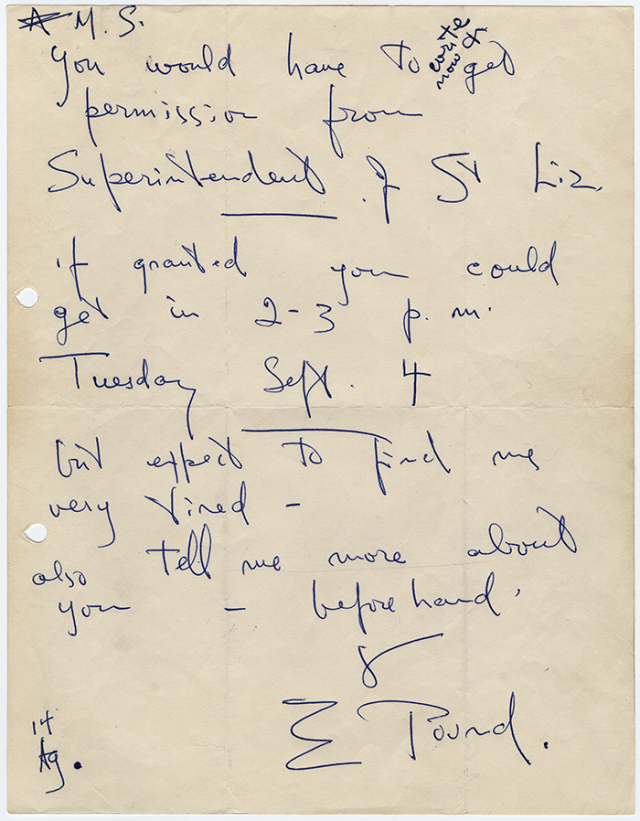 M. S.
You would have to get
write
now &
permission from
Superintendent of St Liz.
if granted you could
get in 2-3 p.m.
Tuesday Sept. 4
but expect to find me
very tired -
also tell me more about
you - beforehand.
E Pound.
14
Ag.